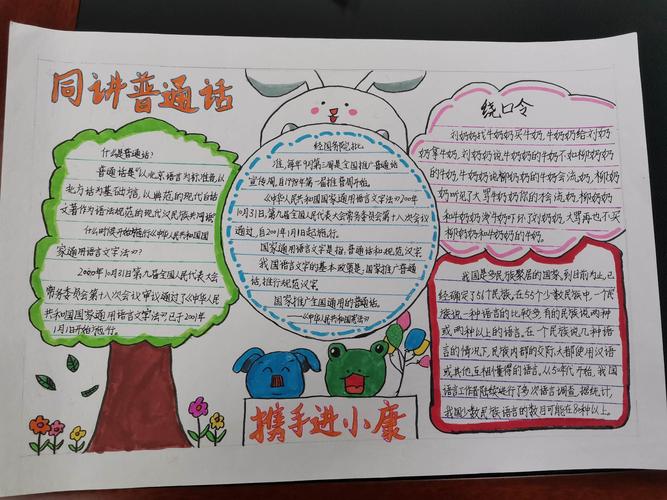 同讲普通话
什么是普通话?
普通话是"以北京语言为标准音,以
北方话为基础方言,以典范的现代白话
文著作为语法规范的现代汉民族共同语"
什么时候开始施行《中华人民共和国国
家通用语言文字法》?
2000年10月31日第九届全国人民代表大会
常务委员会第十八次会议审议通过了《中华人民
共和国国家通用语言文字法》已于2001年
1月1日开始施行。
经国务院批
准,每年9月第三周是全国推广普通话
宣传周,自1998年第一届推普周开始。
《中华人民共和国国家通用语言文字法》2000年
10月31日,第九届全国人民代表大会常务委员会第十八次会议
通过,自2001年1月1日起施行。
国家通用语言文字是指,普通话和规范汉字
我国语言文字的基本政策是,国家推广普通
话,推行规范汉字
国家推广全国通用的普通话。
——《中华人民共和国宪法》
绕口令
刘奶奶找牛奶奶买牛奶,牛奶奶给刘奶
奶拿牛奶,刘奶奶说牛奶奶的牛奶不如柳奶奶
的牛奶,牛奶奶说柳奶奶的牛奶会流奶,柳奶
奶听见了大骂牛奶奶你的才会流奶,柳奶奶
和牛奶奶泼牛奶吓坏了刘奶奶,大骂再也不买
柳奶奶和牛奶奶的牛奶。
我国是多民族聚居的国家,到目前为止,已
经确定了56个民族,在55个少数民族中,一个民
族说一种语言的比较多,有的民族说两种
或两种以上的语言。在一个民族说几种语
言的情况下,民族内部的交际,大都使用汉语
或其他互相懂得的语言,从50年代开始,我国
语言工作者陆续进行了多次语言调查,据统计,
我国少数民族语言的数目可能在80种以上。
携手进小康